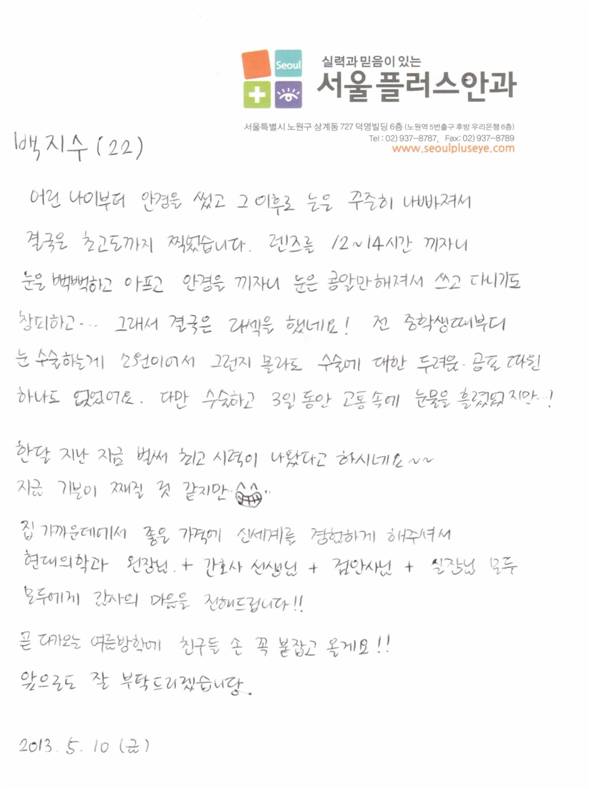 실력과 믿음이 있는
Seoul
서울플러스안과
서울특별시 노원구 상계동 727 덕영빌딩 6층 (노원역 5번출구 후방 우리은행 6층)
Tel : 02) 937-8787, Fax: 02) 937-8789
www.seoulpluseye.com
백지수 (22)
어린 나이부터 안경을 썼고 그 이후로 눈은 꾸준히 나빠져서
결국은 초고도까지 찍었습니다. 렌즈를 12~14시간 끼자니
눈은 빽빽하고 아프고 안경을 끼자니 눈은 콩알만해져서 쓰고 다니기도
창피하고... 그래서 결국은 라섹을 했네요! 전 중학생때부터
눈 수술하는게 소원이어서 그런지 몰라도 수술에 대한 두려움·공포 따윈
하나도 없었어요. 다만 수술하고 3일동안 고통속에 눈물을 흘렸었지만..!
한달 지난 지금 벌써 최고 시력이 나왔다고 하시네요~~
지금 기분이 째질 것 같지만 ^^..
집 가까운데에서 좋은 가격에 신세계를 경험하게 해주셔서
현대의학과 원장님. + 간호사 선생님 + 검안사님 + 실장님 모두
모두에게 감사의 마음을 전해드립니다!!
곧 다가오는 여름방학에 친구들 손 꼭 붙잡고 올게요!!
앞으로도 잘 부탁드리겠습니당.
2013. 5. 10 (금)